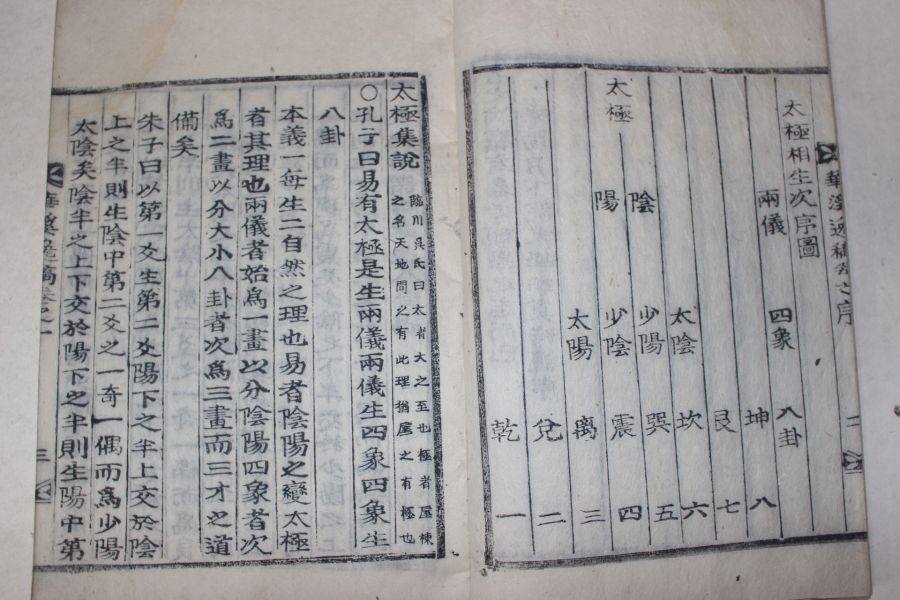 華溪逸稿卷之序 二
太極相生次序圖
兩儀 四象 八卦
太極
陰 陽
太陰 少陽 少陰 太陽
坤 艮 坎 巽 震 離 兌 乾
八 七 六 五 四 三 二 一
太極集說 臨川吳氏曰太者大之至也極者屋棟
之名天地間之有此理猶屋之有極也
○孔子曰易有太極是生兩儀兩儀生四象四象生
八卦
本義一每生二自然之理也易者陰陽之變太極
者其理也兩儀者始爲一畫以分陰陽四象者次
爲二畫以分大小八卦者次爲三畫而三才之道
備矣
朱子曰以第一爻生第二爻陽下之半上交於陰
上之半則生陰中第二爻之一奇一偶而爲少陽
太陰矣陰半之上下交於陽下之半則生陽中第
華溪逸稿卷之一 三